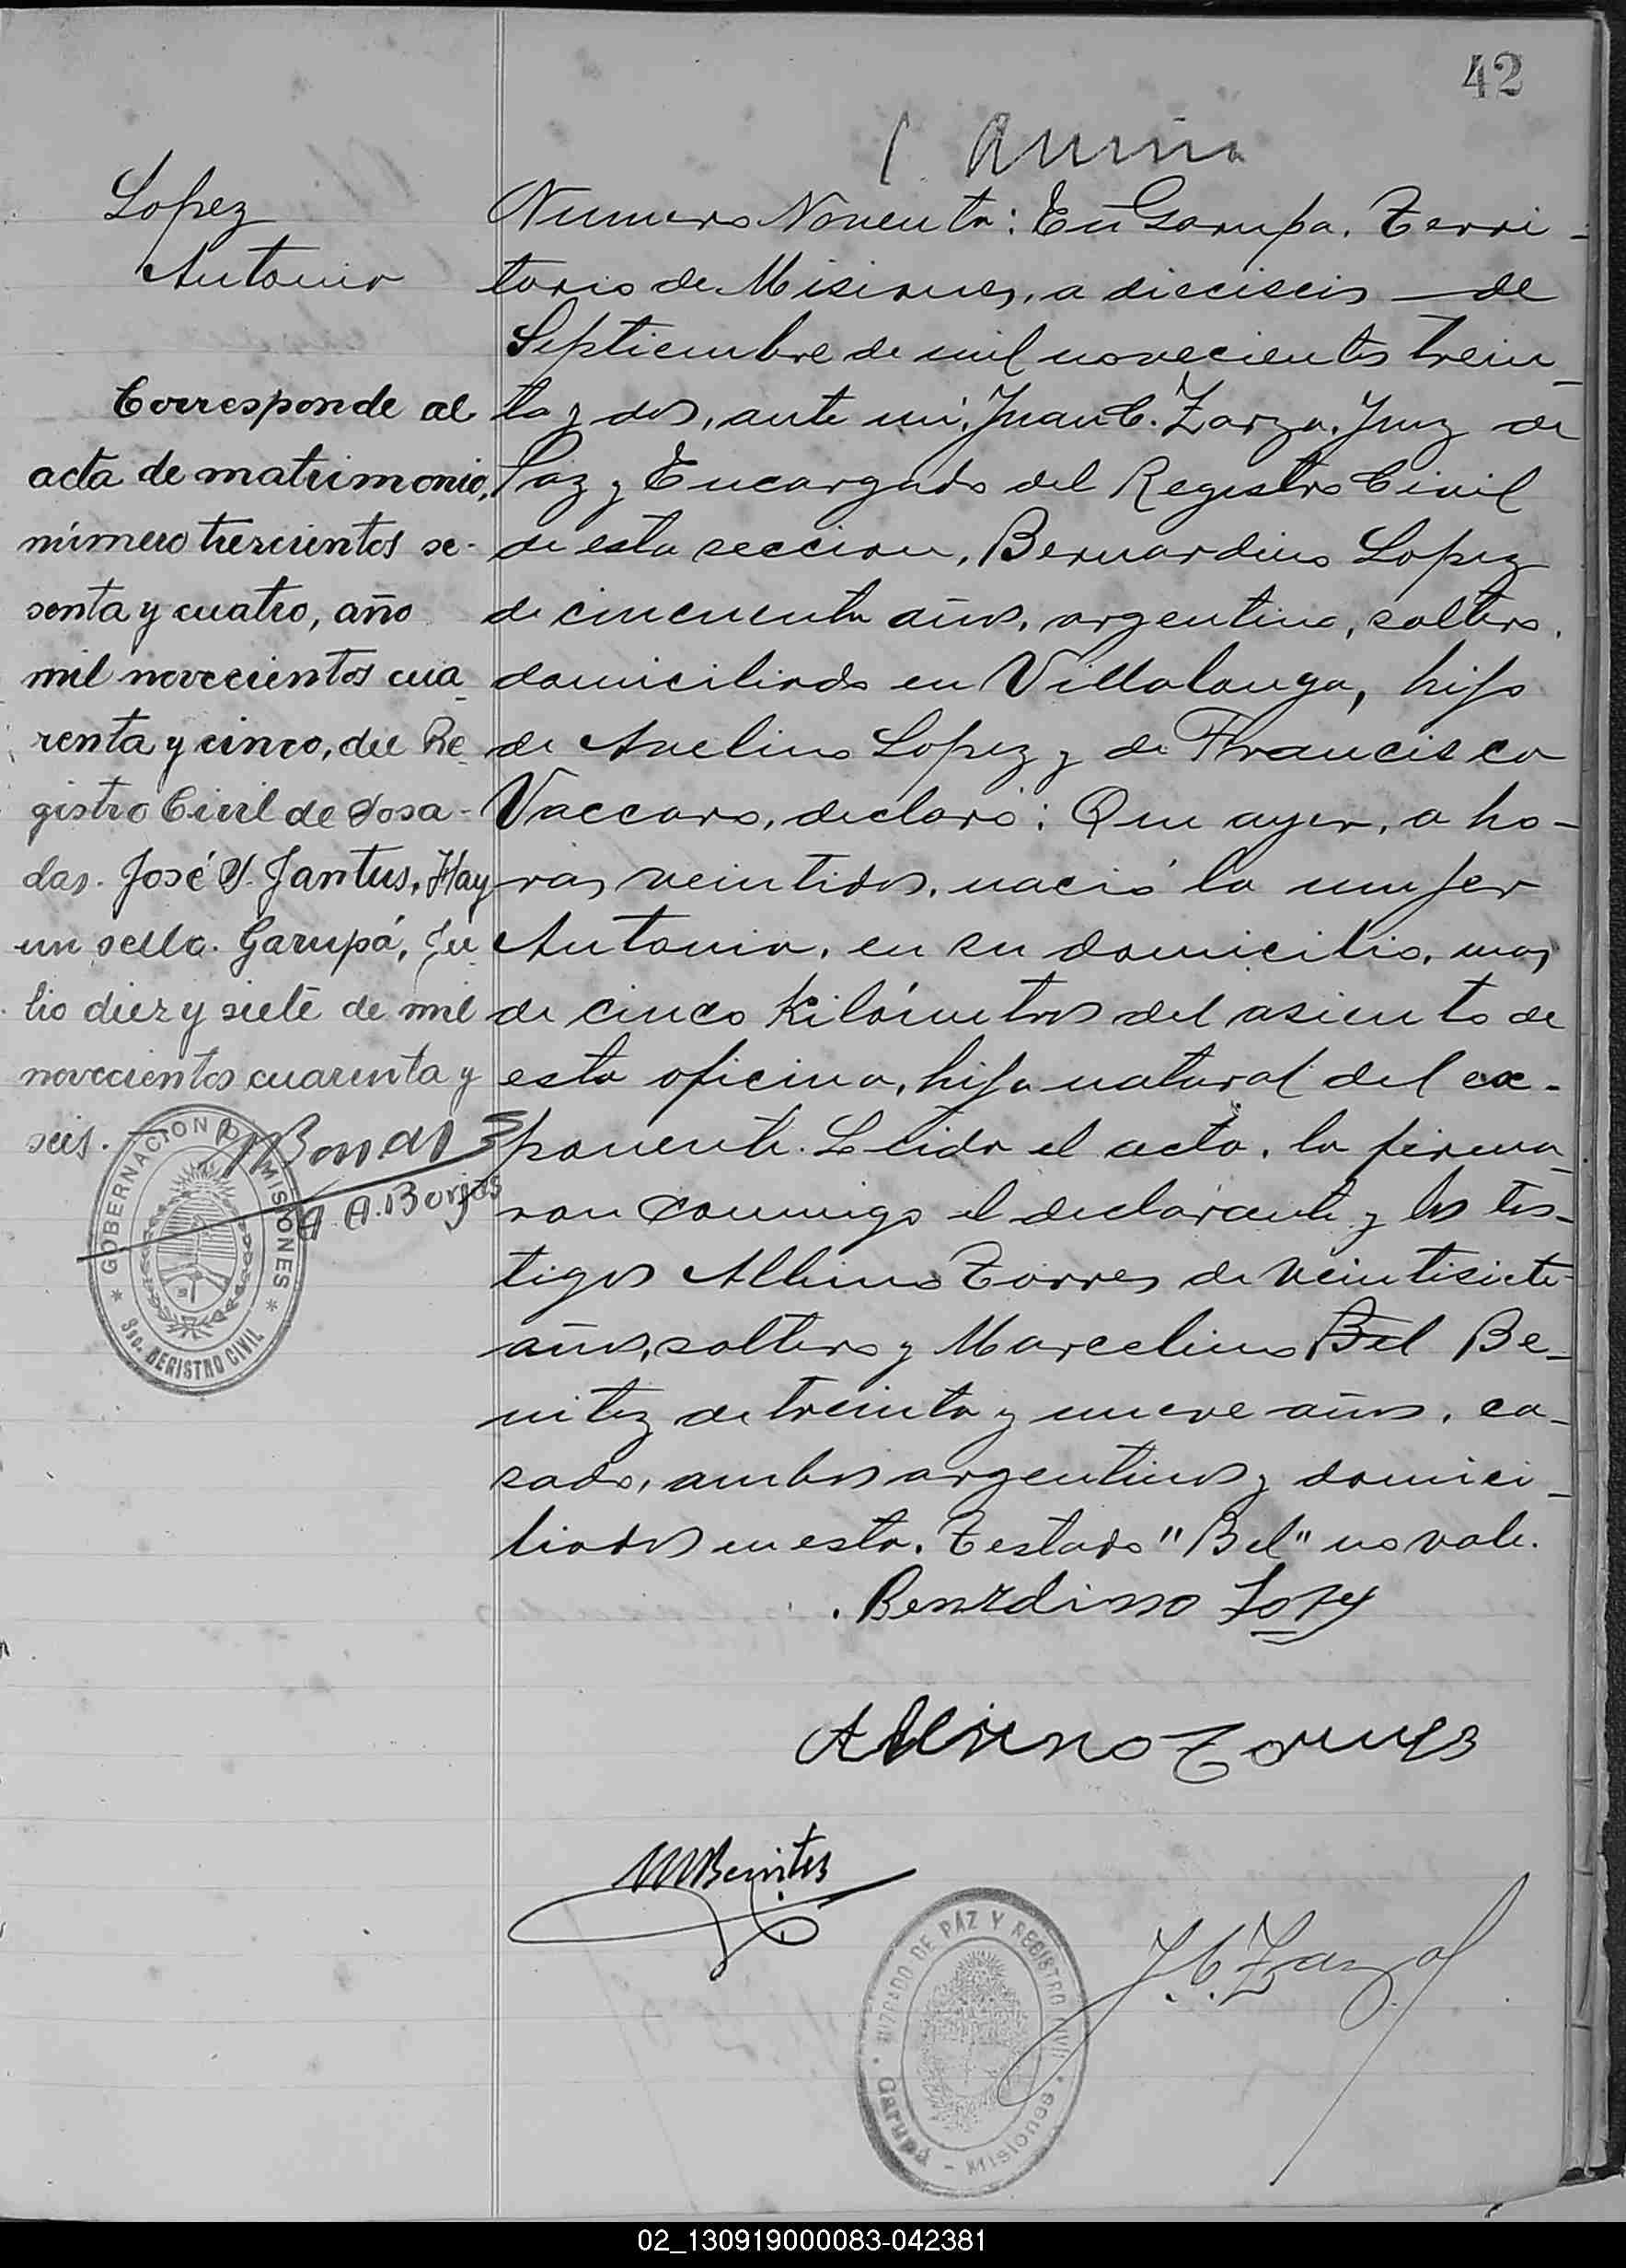 42
Lopez
Antonia
Corresponde al
acta de matrimonio,
número trescientos se-
senta y cuatro, año
mil novecientos cua-
renta y cinco, del Re-
gistro Civil de Posa-
das. José Y. Jantus, Hay
un sello. Garupá, Ju-
lio diez y siete de mil
novecientos cuarenta y
seis.
A. Borjas
GOBERNACION DE MISIONES
REGISTRO CIVIL
Numero Noventa: En Garupa. Terri-
torio de Misiones, a dieciseis — de
Septiembre de mil novecientos trein-
ta y dos, ante mi, Juan C. Zarza, Juez de
Paz y Encargado del Registro Civil
de esta seccion, Bernardino Lopez
de cincuenta años, argentino, soltero,
domiciliado en Villalonga, hijo
de Avelino Lopez y de Francisca
Vaccaro, declaró: Que ayer, a ho-
ras veintidos, nació la mujer
Antonia, en su domicilio, mas
de cinco kilómetros del asiento de
esta oficina, hija natural del ex-
ponente. Leida el acta, la firma-
ron conmigo el declarante y los tes-
tigos Albino Torres de veintisiete
años, soltero y Marcelino Bel Be-
nitez de treinta y nueve años, ca-
sado, ambos argentinos y domici-
liados en esta. Testado "Bel" no vale.
Benrdino Lopez
Albino Torres
M Benites
J. C. Zarza
JUZGADO DE PAZ Y REGISTRO CIVIL
Garupá - Misiones
02_130919000083-042381